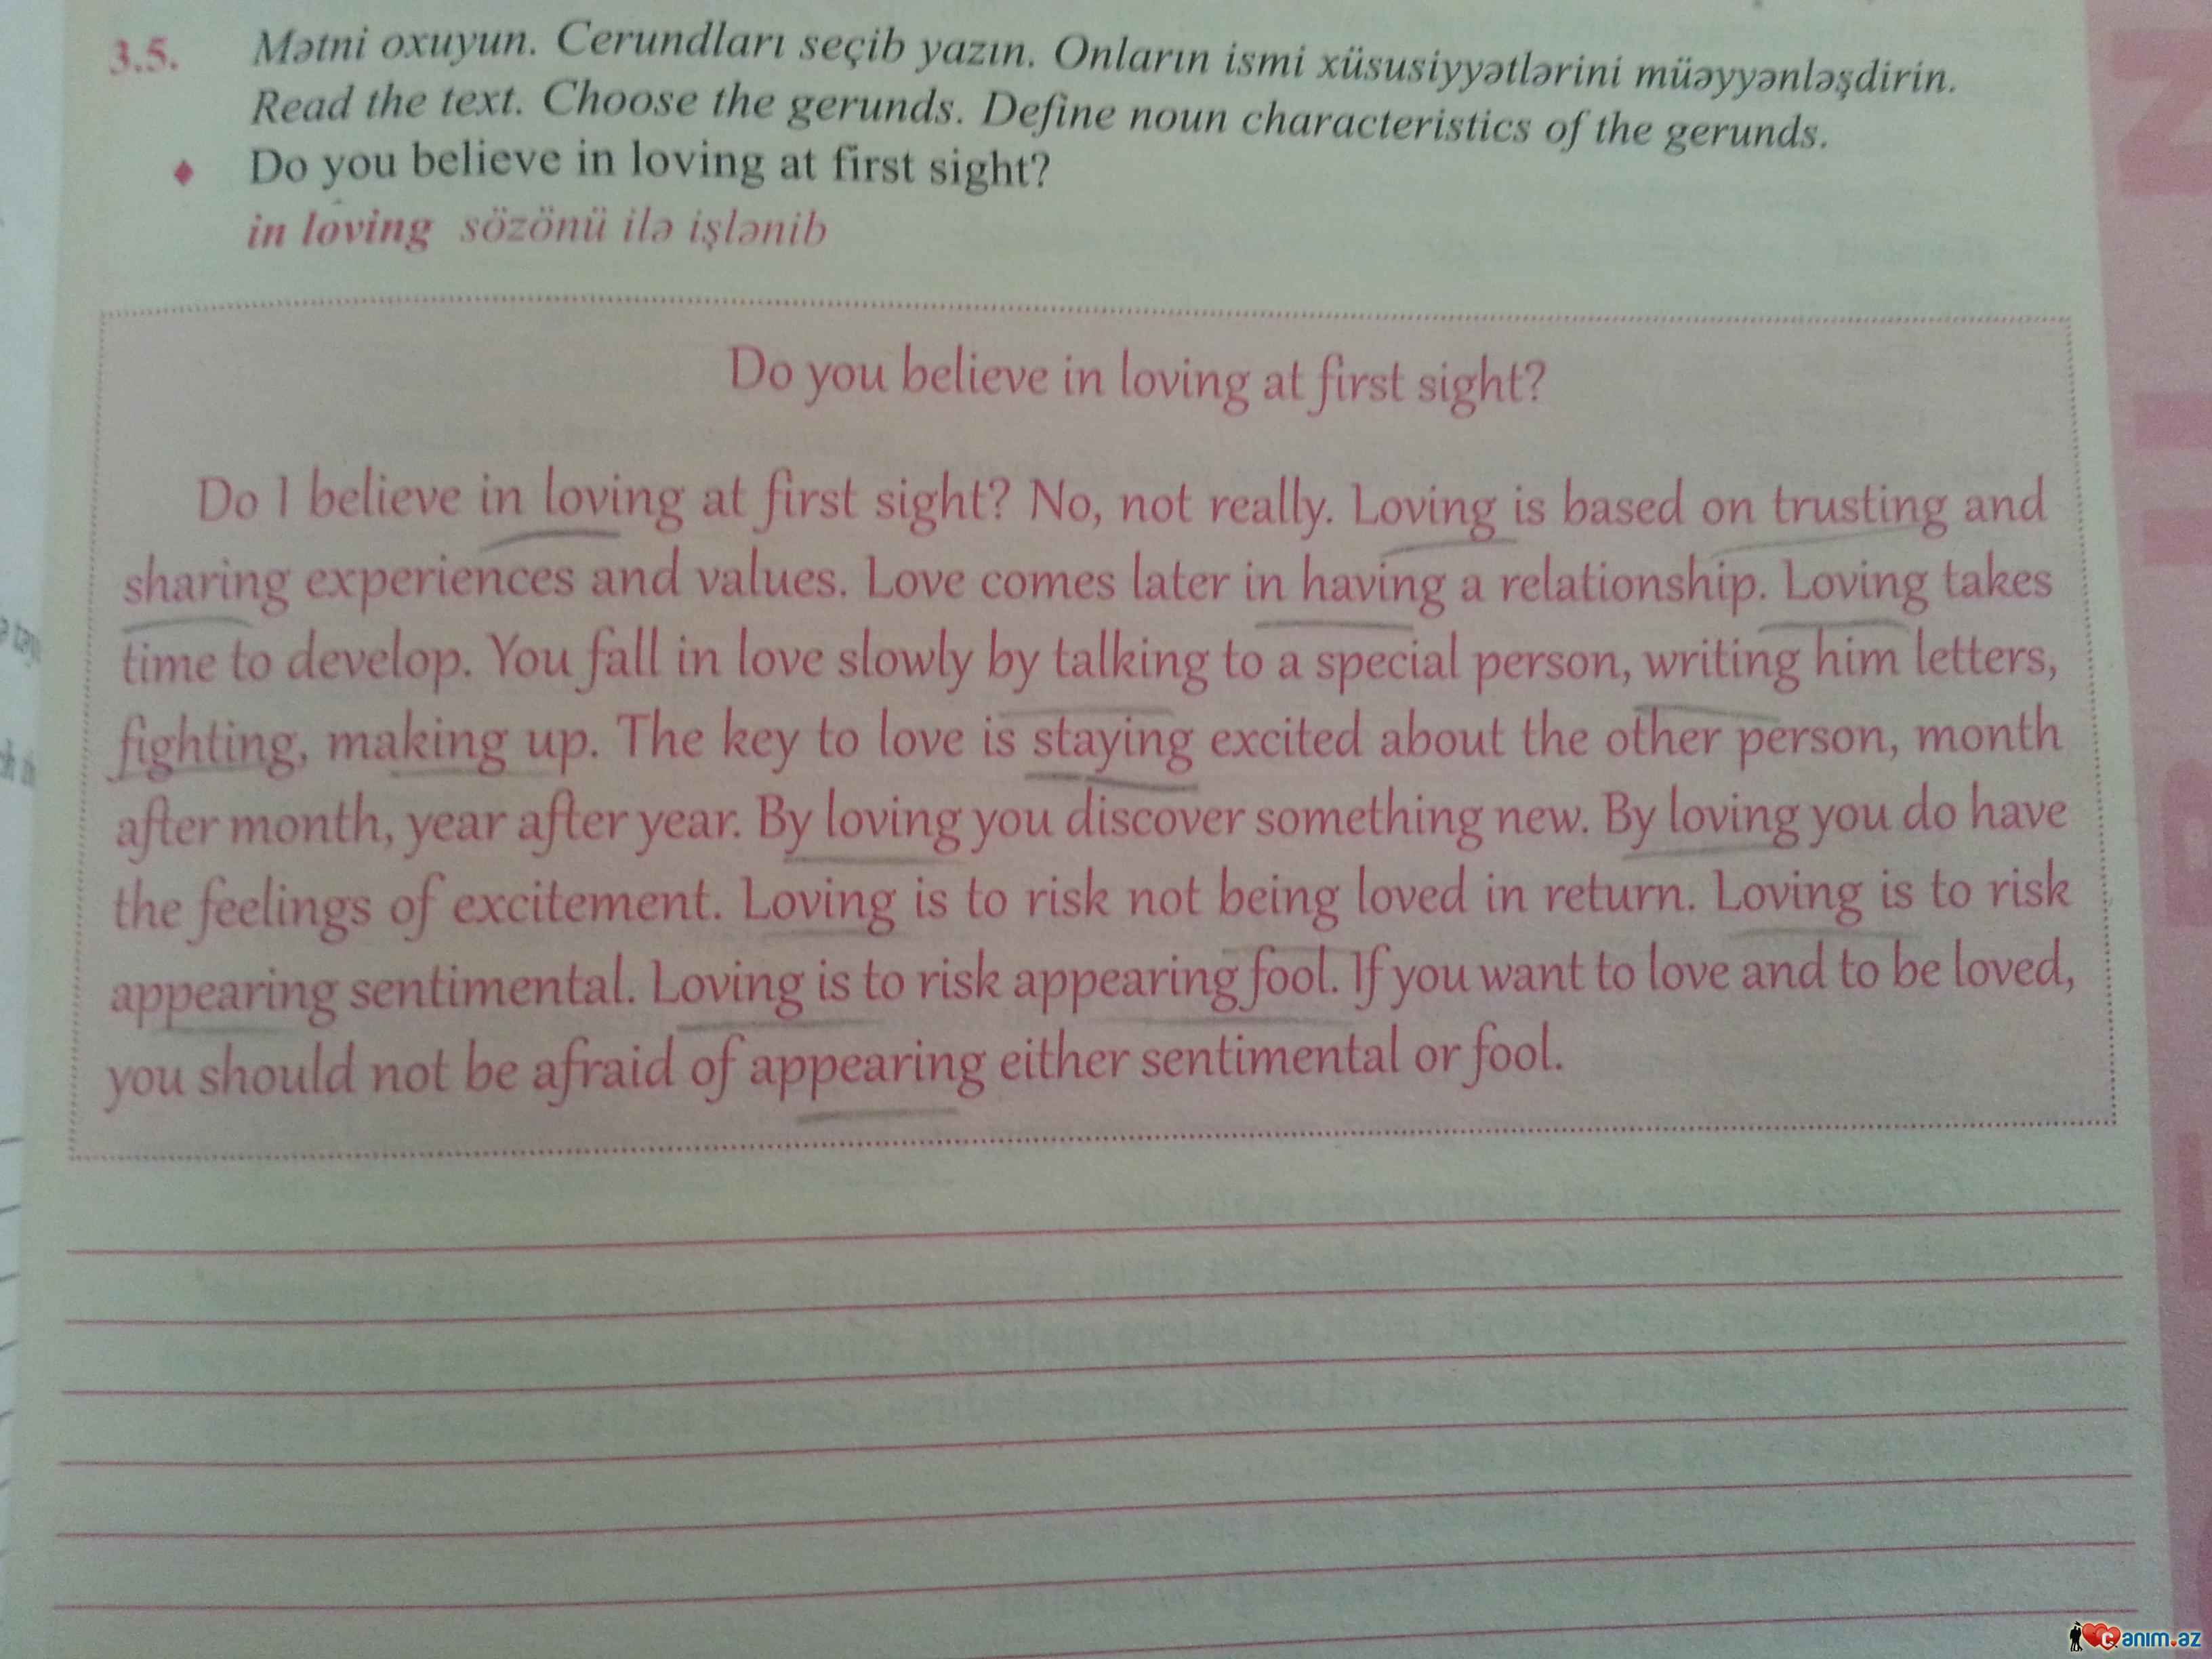 3.5. Mətni oxuyun. Cerundları seçib yazın. Onların ismi xüsusiyyətlərini müəyyənləşdirin.
Read the text. Choose the gerunds. Define noun characteristics of the gerunds.
♦ Do you believe in loving at first sight?
in loving sözönü ilə işlənib
Do you believe in loving at first sight?
Do I believe in loving at first sight? No, not really. Loving is based on trusting and
sharing experiences and values. Love comes later in having a relationship. Loving takes
time to develop. You fall in love slowly by talking to a special person, writing him letters,
fighting, making up. The key to love is staying excited about the other person, month
after month, year after year. By loving you discover something new. By loving you do have
the feelings of excitement. Loving is to risk not being loved in return. Loving is to risk
appearing sentimental. Loving is to risk appearing fool. If you want to love and to be loved,
you should not be afraid of appearing either sentimental or fool.
canim.az